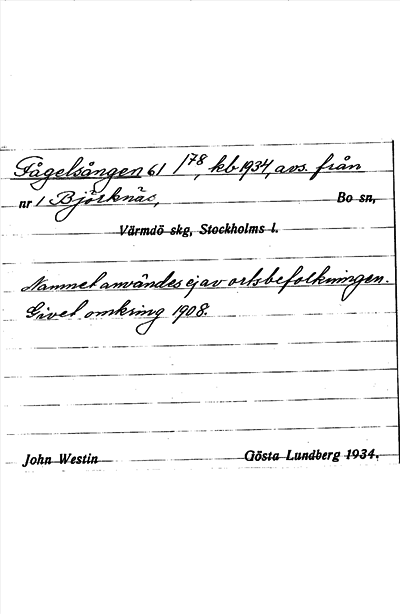 Fågelsången 61 178, kb 1934, avs. från
nr 1 Björknäs, Bo sn,
Värmdö skg, Stockholms l.
Namnet användes ej av ortsbefolkningen.
Givet omkring 1908.
John Westin Gösta Lundberg 1934.